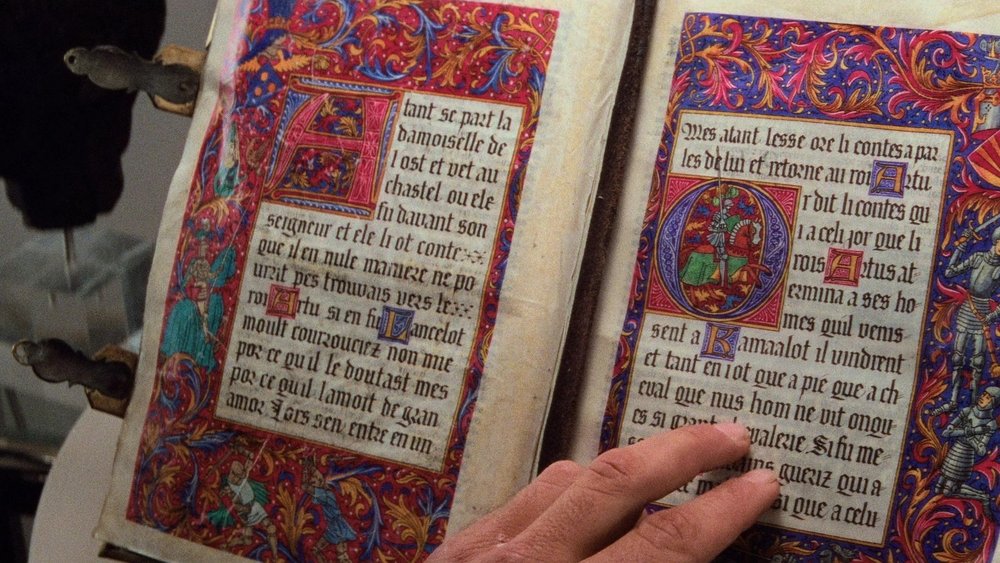 Atant se part la
damoiselle de
l ost et vet au
chastel ou ele
fu davant son
seigneur et ele li ot conte
que il en nule maniere ne po
urrit pes trouvais vers le
roi Artu si en fu Lancelot
moult courouciez non mie
por ce qu il le doutast mes
por ce qu il l amoit de gran
amor Lors sen entre en un
Mes atant lesse ore li contes a par
les de lui et retorne au roi Artu
Or dit li contes qu
i a celi jor que li
rois Artus at
ermina a ses ho
mes quil venis
sent a Kamaalot il vindrent
et tant en i ot que a pie que a ch
eval que nus hom ne vit onqu
es si Si fu me
gueriz qui a
si que a celu